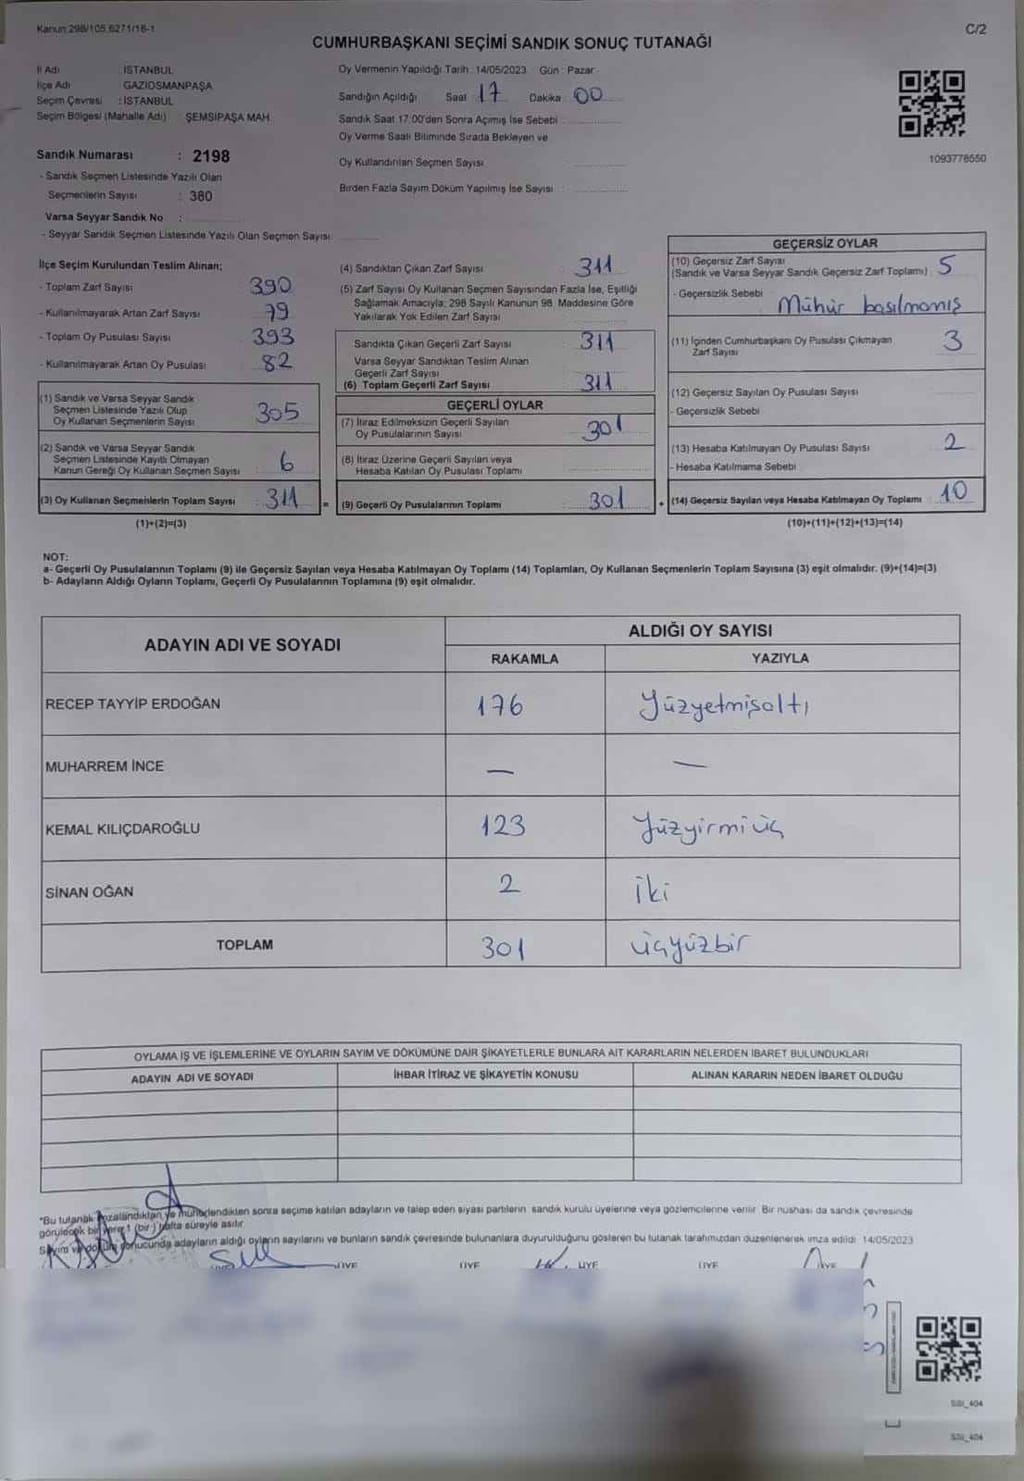 Kanun:298/105,6271/16-1
C/2
CUMHURBAŞKANI SEÇİMİ SANDIK SONUÇ TUTANAĞI
İl Adı : İSTANBUL
İlçe Adı : GAZİOSMANPAŞA
Seçim Çevresi : İSTANBUL
Seçim Bölgesi (Mahalle Adı) : ŞEMSİPAŞA MAH.
Oy Vermenin Yapıldığı Tarih : 14/05/2023 Gün : Pazar
Sandığın Açıldığı Saat 17 Dakika 00
Sandık Saat 17:00'den Sonra Açılmış İse Sebebi :
Oy Verme Saati Bitiminde Sırada Bekleyen ve
Oy Kullandırılan Seçmen Sayısı
Birden Fazla Sayım Döküm Yapılmış İse Sayısı :
1093778550
Sandık Numarası : 2198
- Sandık Seçmen Listesinde Yazılı Olan
Seçmenlerin Sayısı : 380
Varsa Seyyar Sandık No :
- Seyyar Sandık Seçmen Listesinde Yazılı Olan Seçmen Sayısı:
İlçe Seçim Kurulundan Teslim Alınan;
- Toplam Zarf Sayısı 390
- Kullanılmayarak Artan Zarf Sayısı 79
- Toplam Oy Pusulası Sayısı 393
- Kullanılmayarak Artan Oy Pusulası 82
(1) Sandık ve Varsa Seyyar Sandık
Seçmen Listesinde Yazılı Olup
Oy Kullanan Seçmenlerin Sayısı 305
(2) Sandık ve Varsa Seyyar Sandık
Seçmen Listesinde Kayıtlı Olmayan
Kanun Gereği Oy Kullanan Seçmen Sayısı 6
(3) Oy Kullanan Seçmenlerin Toplam Sayısı 311
(1)+(2)=(3)
(4) Sandıktan Çıkan Zarf Sayısı 311
(5) Zarf Sayısı Oy Kullanan Seçmen Sayısından Fazla İse, Eşitliği
Sağlamak Amacıyla; 298 Sayılı Kanunun 98. Maddesine Göre
Yakılarak Yok Edilen Zarf Sayısı
Sandıkta Çıkan Geçerli Zarf Sayısı 311
Varsa Seyyar Sandıktan Teslim Alınan
Geçerli Zarf Sayısı
(6) Toplam Geçerli Zarf Sayısı 311
GEÇERLİ OYLAR
(7) İtiraz Edilmeksizin Geçerli Sayılan
Oy Pusulalarının Sayısı 301
(8) İtiraz Üzerine Geçerli Sayılan veya
Hesaba Katılan Oy Pusulası Toplamı
= (9) Geçerli Oy Pusulalarının Toplamı 301
GEÇERSİZ OYLAR
(10) Geçersiz Zarf Sayısı
(Sandık ve Varsa Seyyar Sandık Geçersiz Zarf Toplamı) 5
- Geçersizlik Sebebi Mühür basılmamış
(11) İçinden Cumhurbaşkanı Oy Pusulası Çıkmayan
Zarf Sayısı 3
(12) Geçersiz Sayılan Oy Pusulası Sayısı
- Geçersizlik Sebebi
(13) Hesaba Katılmayan Oy Pusulası Sayısı 2
- Hesaba Katılmama Sebebi
+ (14) Geçersiz Sayılan veya Hesaba Katılmayan Oy Toplamı 10
(10)+(11)+(12)+(13)=(14)
NOT:
a- Geçerli Oy Pusulalarının Toplamı (9) ile Geçersiz Sayılan veya Hesaba Katılmayan Oy Toplamı (14) Toplamları, Oy Kullanan Seçmenlerin Toplam Sayısına (3) eşit olmalıdır. (9)+(14)=(3)
b- Adayların Aldığı Oyların Toplamı, Geçerli Oy Pusulalarının Toplamına (9) eşit olmalıdır.
ADAYIN ADI VE SOYADI
ALDIĞI OY SAYISI
RAKAMLA YAZIYLA
RECEP TAYYİP ERDOĞAN 176 Yüzyetmişaltı
MUHARREM İNCE — —
KEMAL KILIÇDAROĞLU 123 Yüzyirmiüç
SİNAN OĞAN 2 iki
TOPLAM 301 üçyüzbir
OYLAMA İŞ VE İŞLEMLERİNE VE OYLARIN SAYIM VE DÖKÜMÜNE DAİR ŞİKAYETLERLE BUNLARA AİT KARARLARIN NELERDEN İBARET BULUNDUKLARI
ADAYIN ADI VE SOYADI İHBAR İTİRAZ VE ŞİKAYETİN KONUSU ALINAN KARARIN NEDEN İBARET OLDUĞU
*Bu tutanak imzalandıktan ve mühürlendikten sonra seçime katılan adayların ve talep eden siyasi partilerin sandık kurulu üyelerine veya gözlemcilerine verilir. Bir nüshası da sandık çevresinde
görülecek bir yere 1 (bir) hafta süreyle asılır.
Sayım ve döküm sonucunda adayların aldığı oyların sayılarını ve bunların sandık çevresinde bulunanlara duyurulduğunu gösteren bu tutanak tarafımızdan düzenlenerek imza edildi. 14/05/2023
ÜYE ÜYE ÜYE ÜYE ÜYE
SSI_404
SSI_404